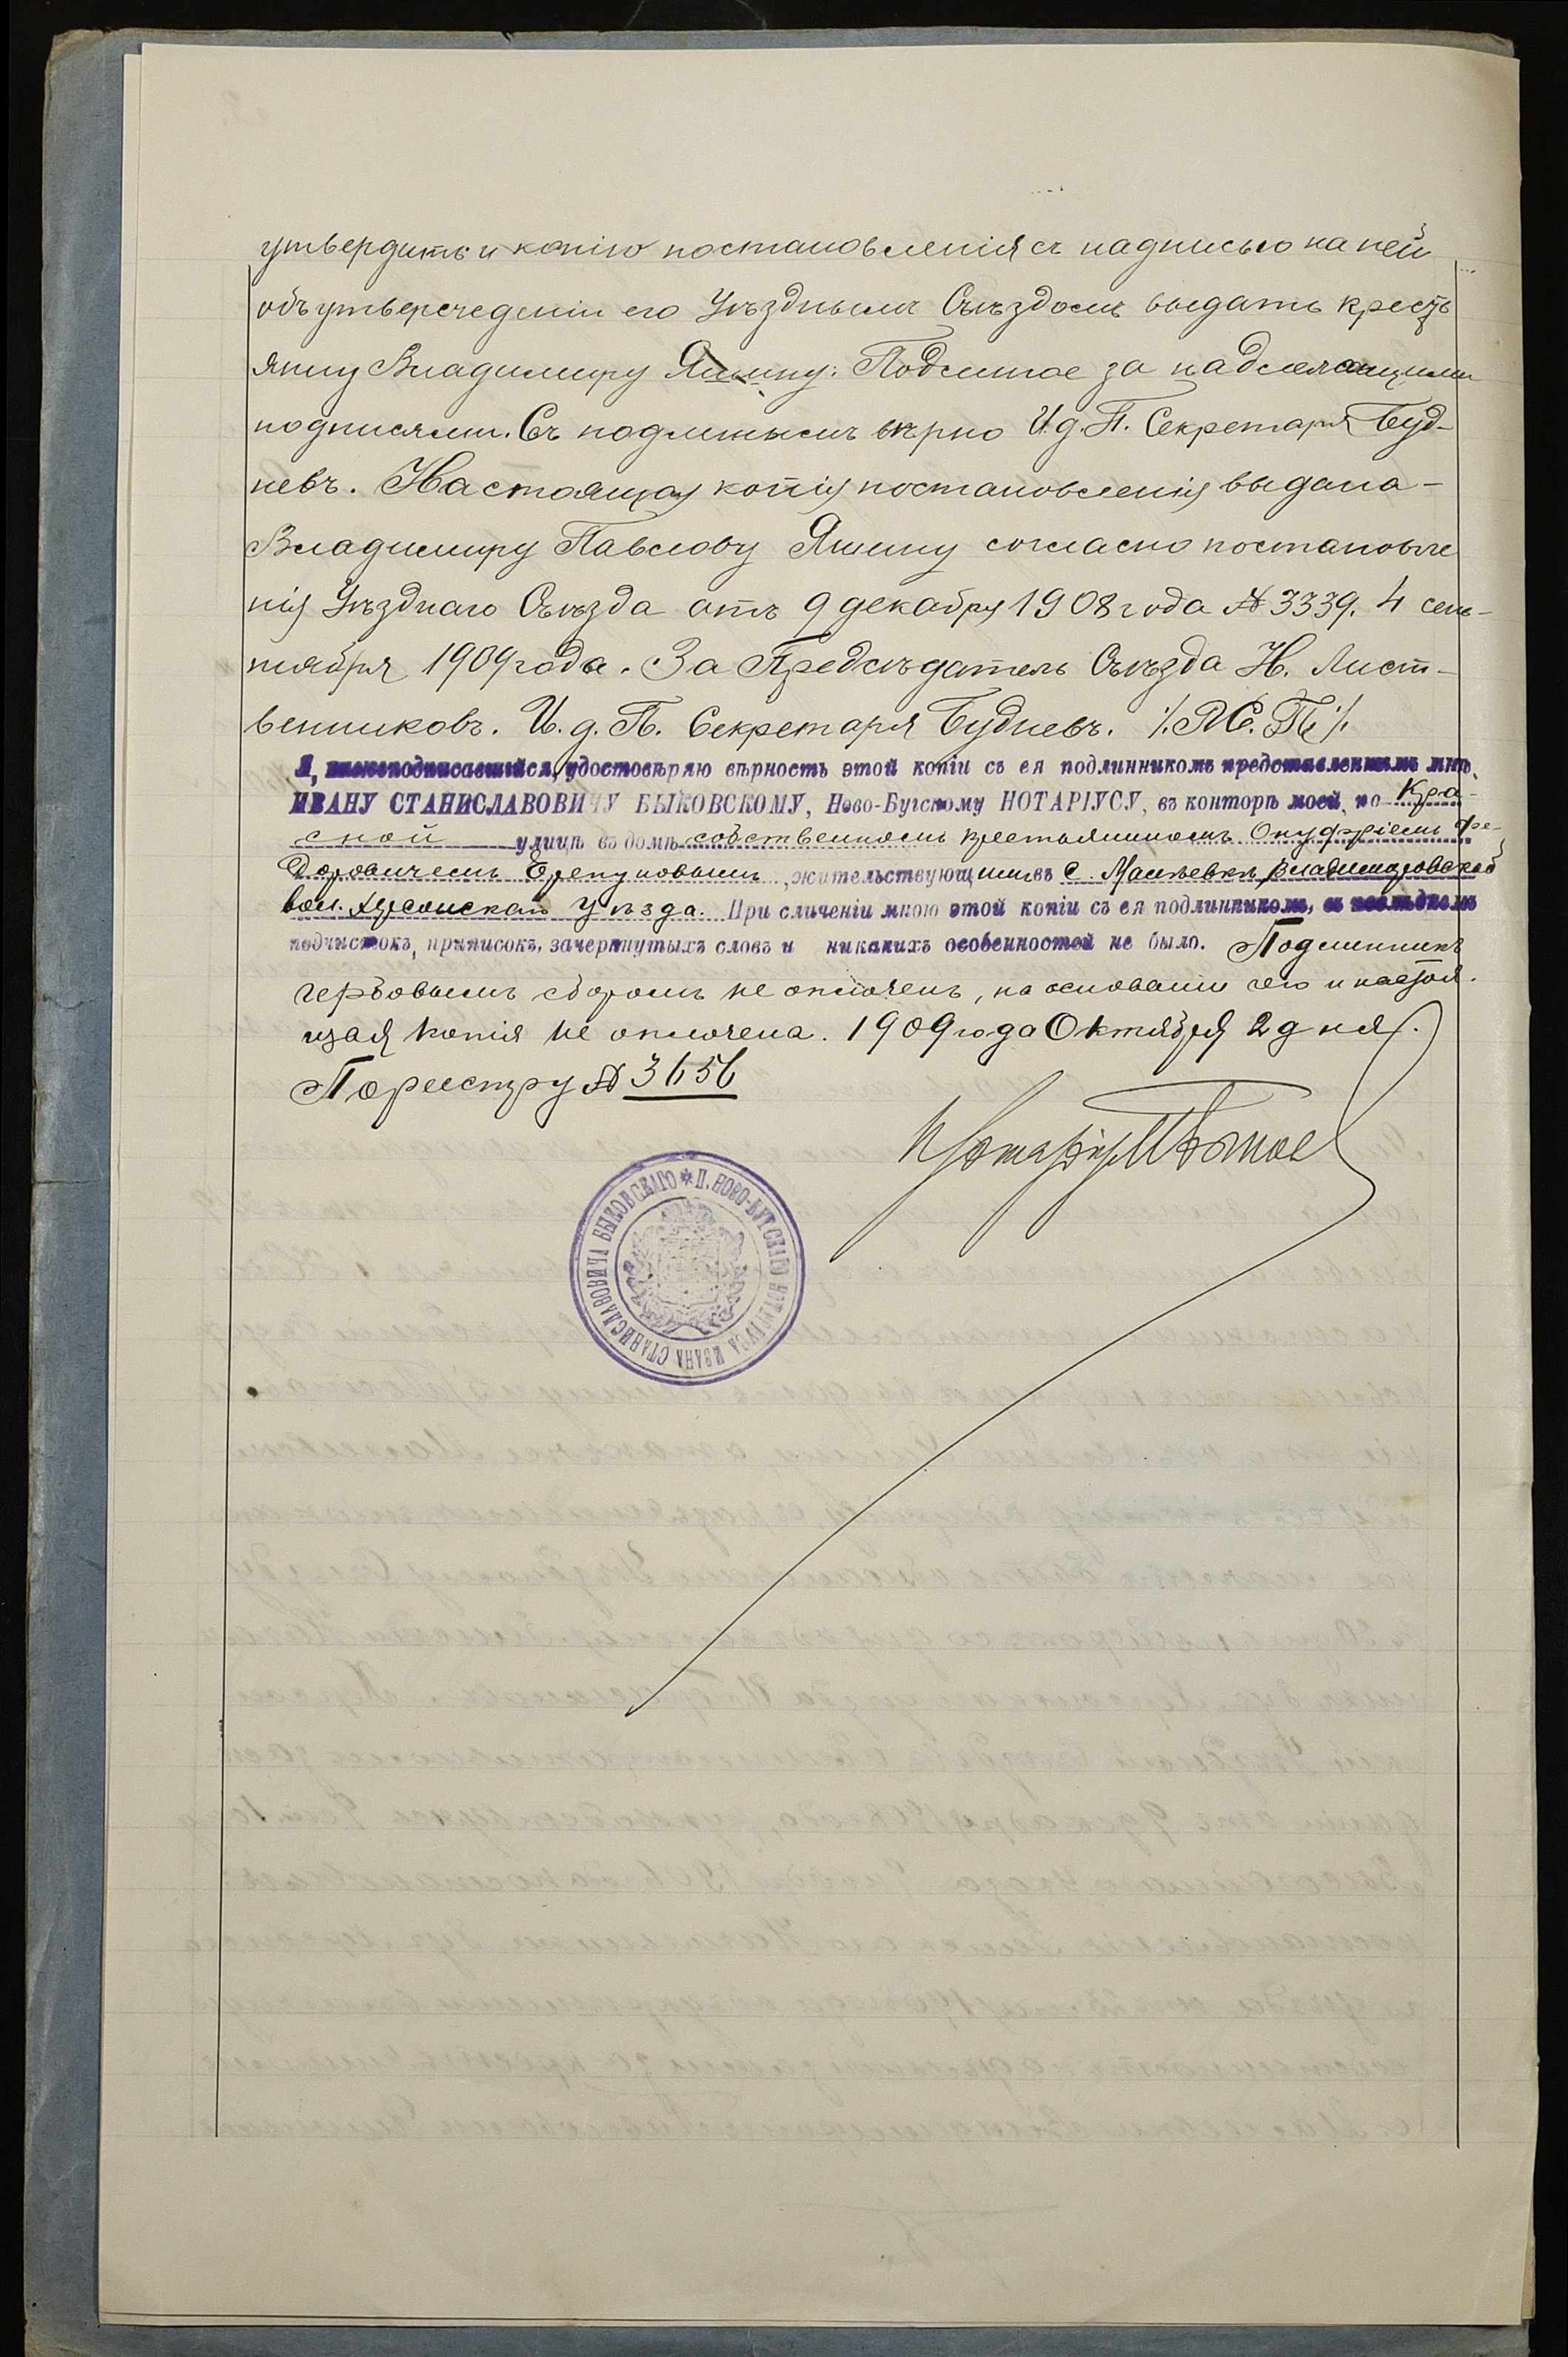 утвердить и копію постановленія съ надписью на ней
объ утвержденіи его Уѣзднымъ Съѣздомъ выдать кресть
янину Владимиру Яшину. Подлинное за надлежащими
подписями. Съ подлиннымъ вѣрно И. д. П. Секретаря Буд-
невъ. Настоящая копія постановленія выдана -
Владимиру Павлову Яшину согласно постановле
нія Уѣзднаго Съѣзда отъ 9 декабря 1908 года № 3339. 4 сен-
тября 1909 года. За Предсѣдатель Съѣзда Н. Лист-
венниковъ. И. д. П. Секретаря Будневъ. /. М. П. /.
Я, нижеподписавшійся, удостовѣряю вѣрность этой копіи съ ея подлинникомъ представленнымъ мнѣ,
ИВАНУ СТАНИСЛАВОВИЧУ БЫКОВСКОМУ, Ново-Бугскому НОТАРІУСУ, въ конторѣ моей, по Кра-
сной улицѣ въ домѣ собственномъ крестьяниномъ Онуфріемъ Фе-
доровичемъ , жительствующимъ въ с. Владимировской
вол. Херсонскаго уѣзда. При сличеніи мною этой копіи съ ея подлинникомъ, въ послѣднемъ
подчистокъ, приписокъ, зачеркнутыхъ словъ и никакихъ особенностей не было. Подлинникъ
гербовымъ сборомъ не оплоченъ, на основаніи чего и настоя-
щая копія не оплочена. 1909 года Октября 2 дня.
По реестру № 3656
Нотаріусъ
П. НОВО-БУГСКАГО НОТАРІУСА ИВАНА СТАНИСЛАВОВИЧА БЫКОВСКАГО